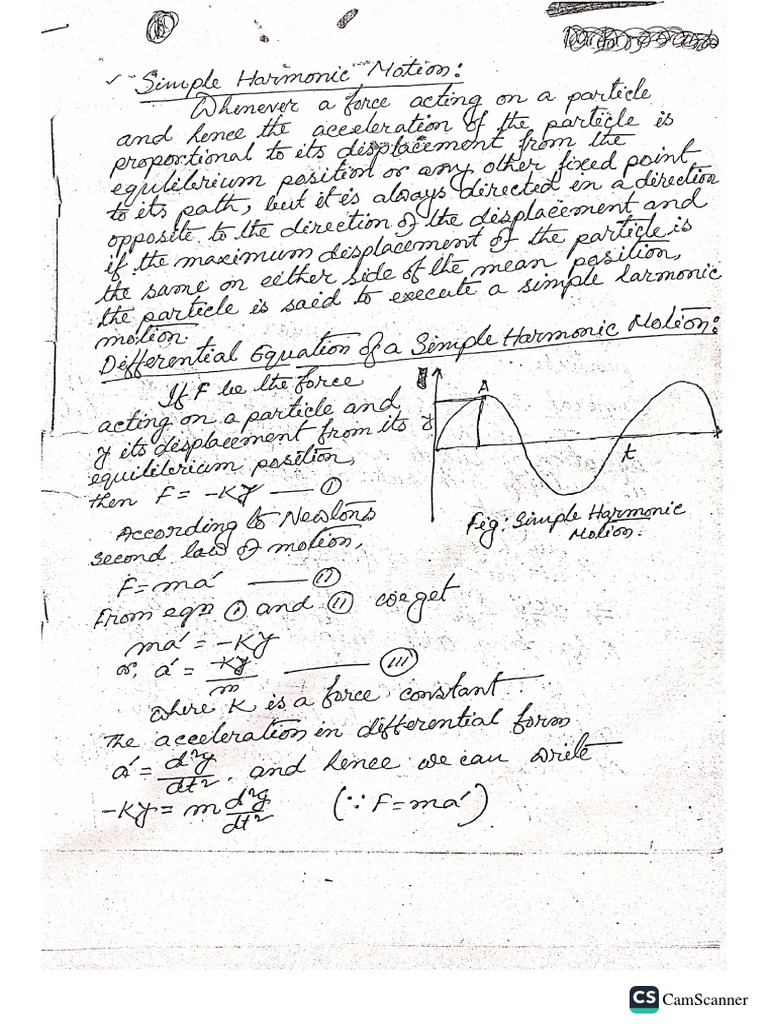 Simple Harmonic Motion:
Whenever a force acting on a particle
and hence the acceleration of the particle is
proportional to its displacement from the
equlilibrium position or any other fixed point
to its path, but it is always directed in a direction
opposite to the direction of the displacement and
if the maximum displacement of the particle is
the same on either side of the mean position,
the particle is said to execute a simple larmonic
motion.
Differential Equation of a Simple Harmonic Motion:
If F be the force
acting on a particle and
y its displacement from its
equilibrium position,
then F = -Ky — (I)
According to Newtons
second law of motion,
F = ma' — (II)
From eqn (I) and (II) we get
ma' = -Ky
or, a' = -Ky/m — (III)
where K is a force constant.
The acceleration in differential form
a' = d²y/dt², and hence we can write
-Ky = m d²y/dt² (∵ F = ma')
A
y
t
Fig: Simple Harmonic
Motion.
CS CamScanner